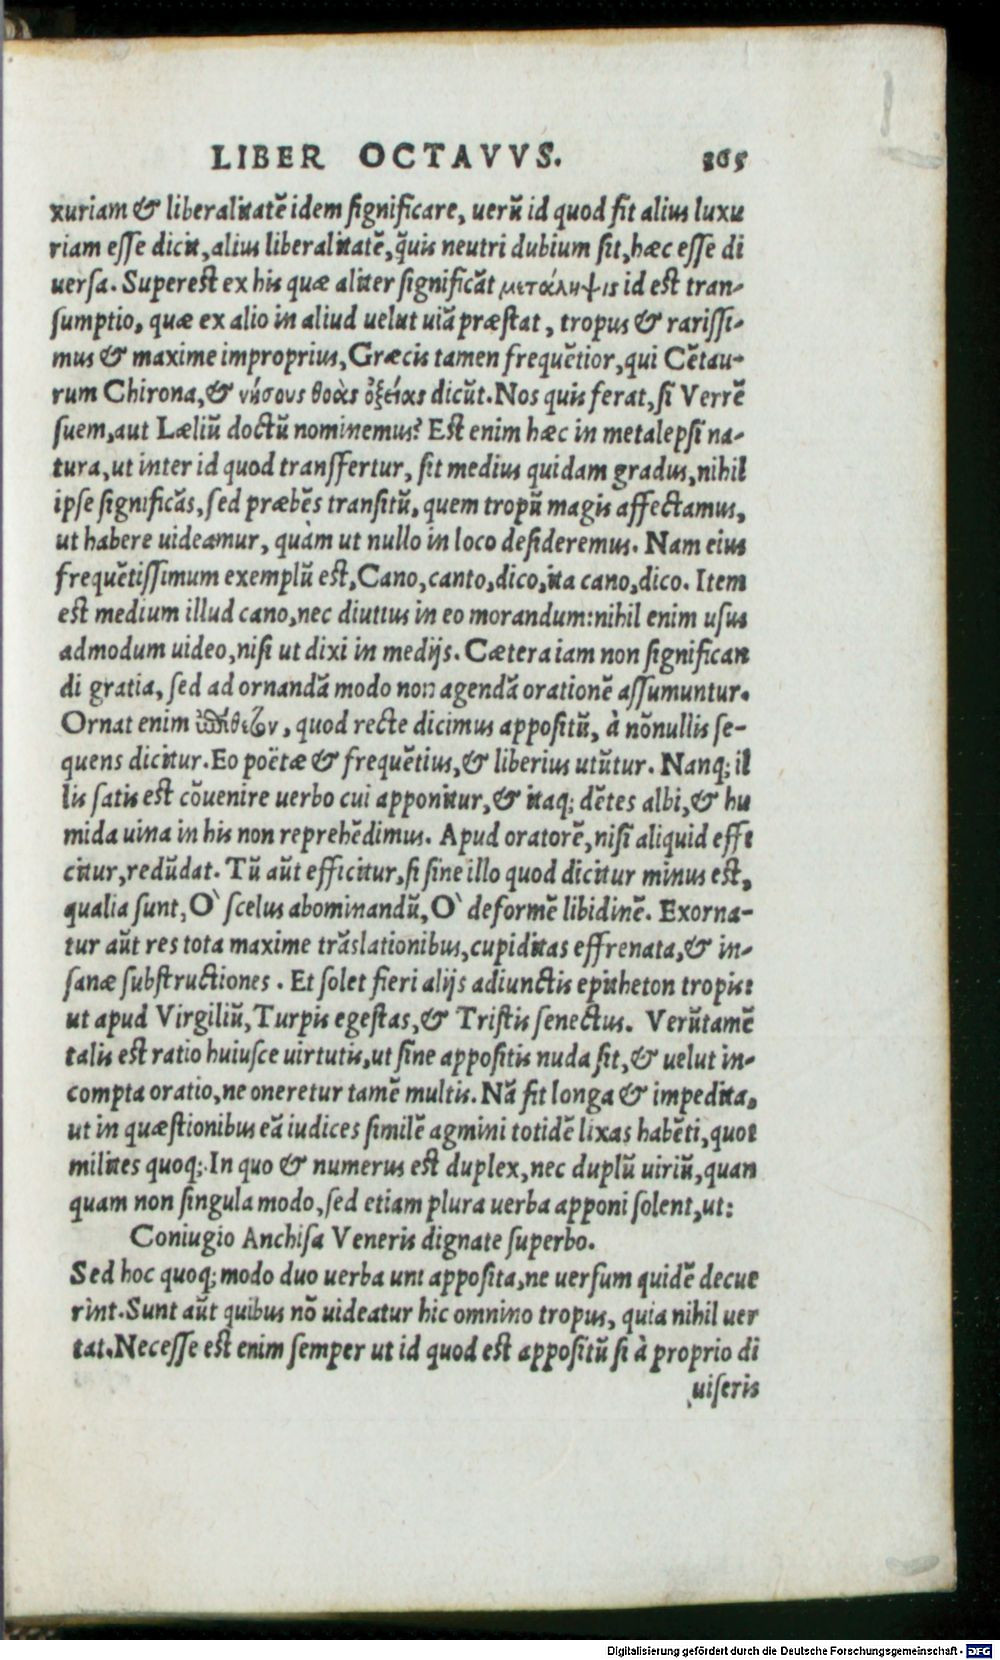 LIBER OCTAVVS. 365
xuriam & liberalitatē idem significare, uerū id quod fit alius luxu
riam esse dicit, alius liberalitatē, q̃uis neutri dubium sit, hæc esse di
uersa. Superest ex his quæ aliter significāt μετάληψις id est tran-
sumptio, quæ ex alio in aliud uelut uiā præstat, tropus & rarissi-
mus & maxime improprius, Græcis tamen frequētior, qui Cētau-
rum Chirona, & νήσους θοὰς ὀξείας dicūt. Nos quis ferat, si Verrē
suem, aut Læliū doctū nominemus? Est enim hæc in metalepsi na-
tura, ut inter id quod transfertur, sit medius quidam gradus, nihil
ipse significās, sed præbēs transitū, quem tropū magis affectamus,
ut habere uideamur, quàm ut nullo in loco desideremus. Nam eius
frequētissimum exemplū est, Cano, canto, dico, ita cano, dico. Item
est medium illud cano, nec diutius in eo morandum: nihil enim usus
admodum uideo, nisi ut dixi in medijs. Cætera iam non significan
di gratia, sed ad ornandā modo non agendā orationē assumuntur.
Ornat enim ἐπίθετον, quod recte dicimus appositū, à nōnullis se-
quens dicitur. Eo poëtæ & frequētius, & liberius utūtur. Nanq; il
lis satis est cōuenire uerbo cui apponitur, & itaq; dētes albi, & hu
mida uina in his non reprehēdimus. Apud oratorē, nisi aliquid effi
citur, redūdat. Tū aūt efficitur, si sine illo quod dicitur minus est,
qualia sunt, O` scelus abominandū, O` deformē libidinē. Exorna-
tur aūt res tota maxime trāslationibus, cupiditas effrenata, & in-
sanæ substructiones. Et solet fieri alijs adiunctis epitheton tropis:
ut apud Virgiliū, Turpis egestas, & Tristis senectus. Verūtamē
talis est ratio huiusce uirtutis, ut sine appositis nuda sit, & uelut in-
compta oratio, ne oneretur tamē multis. Nā fit longa & impedita,
ut in quæstionibus eā iudices similē agmini totidē lixas habēti, quot
milites quoq;. In quo & numerus est duplex, nec duplū uiriū, quan
quam non singula modo, sed etiam plura uerba apponi solent, ut:
Coniugio Anchisa Veneris dignate superbo.
Sed hoc quoq; modo duo uerba uni apposita, ne uersum quidē decue
rint. Sunt aūt quibus nō uideatur hic omnino tropus, quia nihil uer
tat. Necesse est enim semper ut id quod est appositū si à proprio di
uiseris
Digitalisierung gefördert durch die Deutsche Forschungsgemeinschaft - DFG